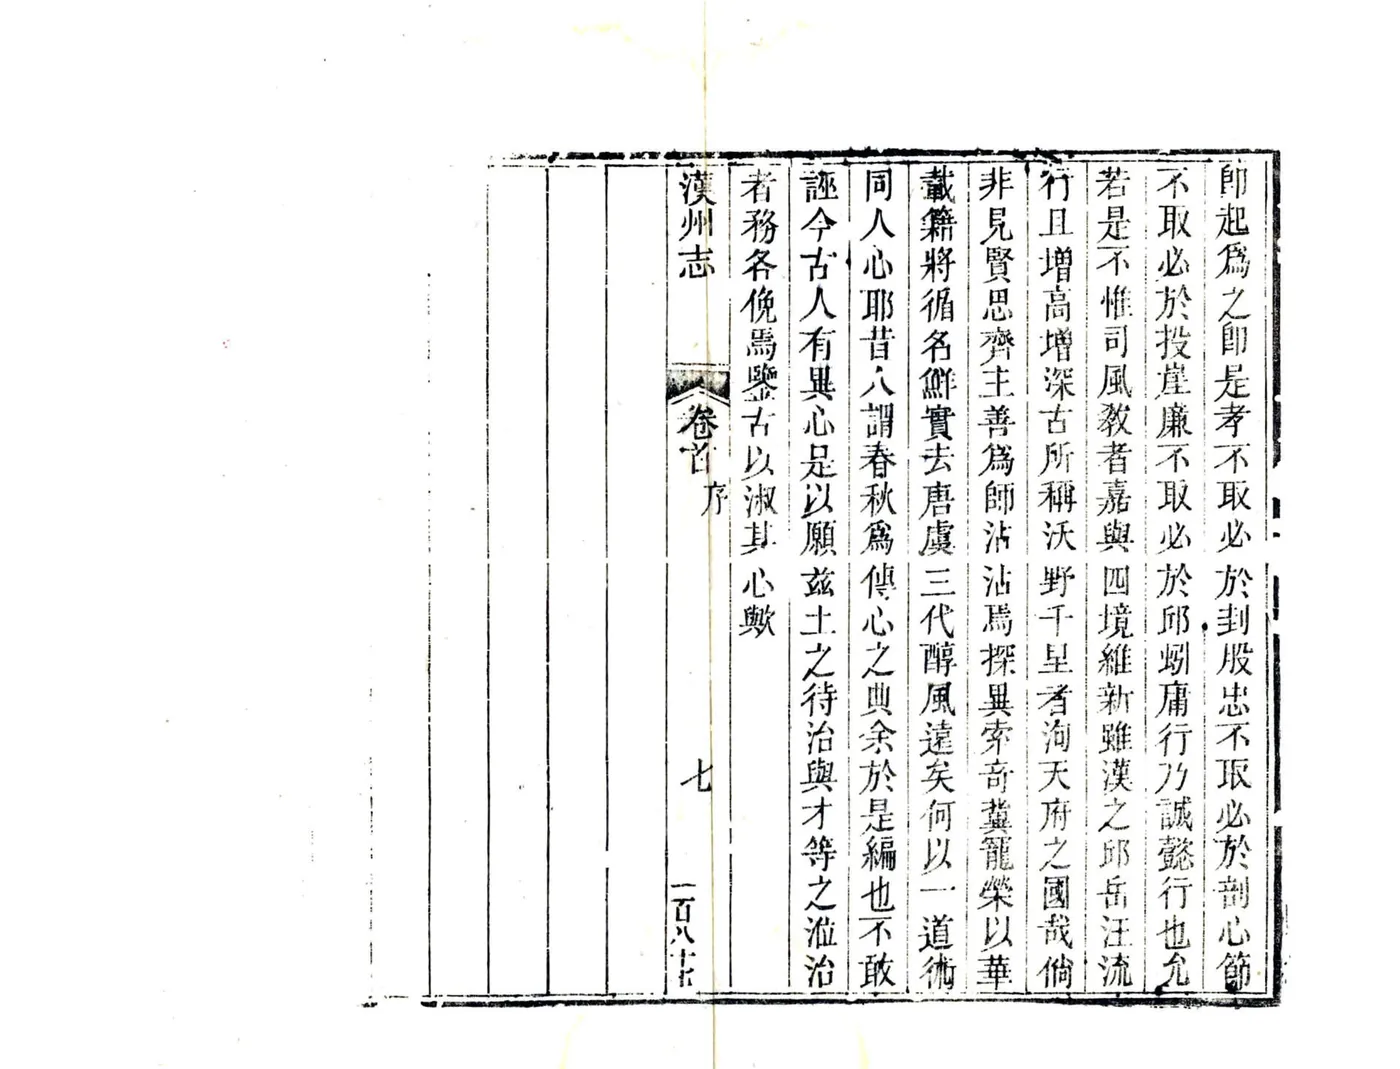 卽起爲之卽是孝不取必於刲股忠不取必於剖心節
不取必於投崖廉不取必於邱蚓庸行乃誠懿行也允
若是不惟司風教者嘉與四境維新雖漢之邱岳汪流
行且增高增深古所稱沃野千里者洵天府之國哉倘
非見賢思齊主善爲師沾沾焉探異索奇冀寵榮以華
載籍將循名鮮實去唐虞三代醇風遠矣何以一道術
同人心耶昔人謂春秋爲傳心之典余於是編也不敢
誣今古人有異心是以願兹土之待治與才等之涖治
者務各俛焉鑒古以淑其心歟
漢州志
卷首
序
七
一百八十七